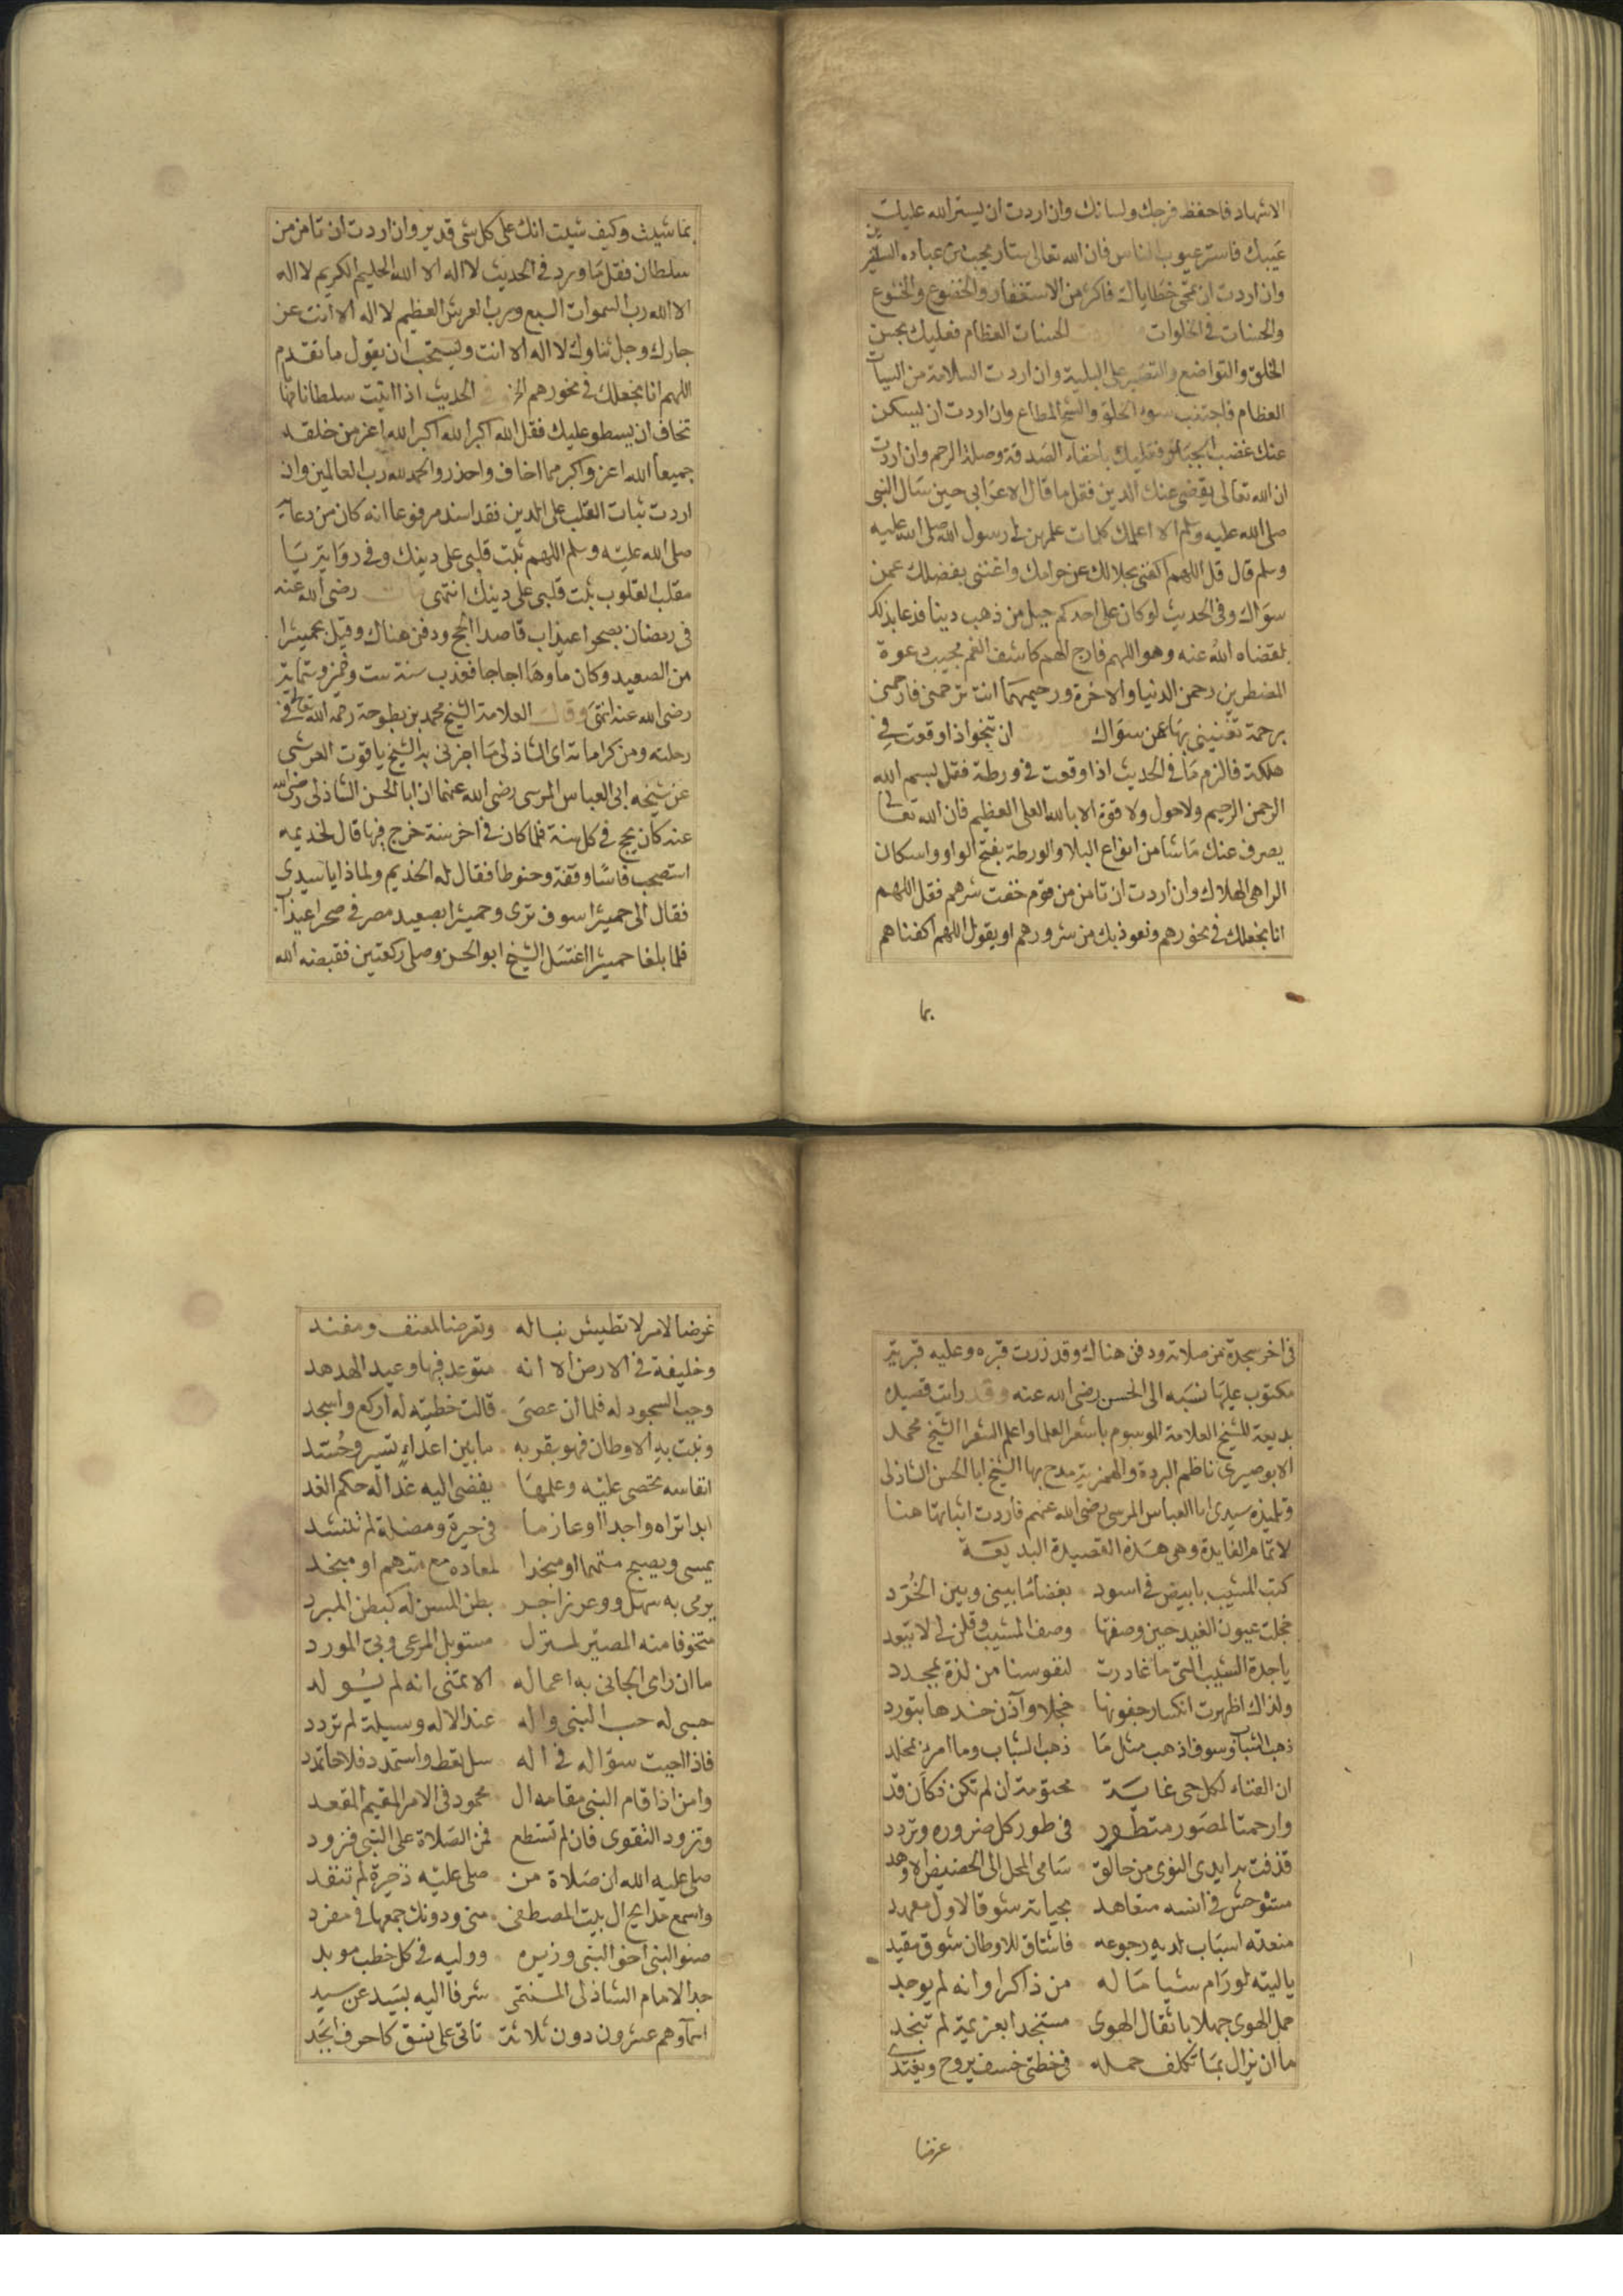 الاشهاد فاحفظ فرجك ولسانك وان اردت ان يستر الله عليك
عيبك فاستر عيوب الناس فان الله تعالى ستار يحب من عباده الستيرين
وان اردت ان تمحى خطاياك فاكثر من الاستغفار والخضوع والخشوع
والحسنات في الخلوات الحسنات العظام فعليك بحسن
الخلق والتواضع والتصبر على البلية وان اردت السلامة من السيآت
العظام فاجتنب سوء الخلق والشح المطاع وان اردت ان ليسكن
عنك غضب الجبار فعليك باخفاء الصدقة وصلة الرحم وان اردت
ان الله تعالى يقضى عنك الدين فقل ما قال الاعرابى حين سال النبى
صلى الله عليه وسلم الا اعلمك كلمات علمهن لى رسول الله صلى الله عليه
وسلم قال قل اللهم اكفنى بحلالك عن حرامك واغننى بفضلك عمن
سواك وفى الحديث لو كان على احدكم جبل من ذهب دينا فدعا بذلك
لقضاه الله عنه وهو اللهم فارج الهم كاشف الغم مجيب دعوة
المضطرين رحمن الدنيا والاخرة ورحيمهما انت ترحمنى فارحمنى
برحمة تغنينى بها عمن سواك ان تنجو اذا وقعت في
هلكة فالزم ما في الحديث اذا وقعت في ورطة فقل بسم الله
الرحمن الرحيم ولا حول ولا قوة الا بالله العلى العظيم فان الله تعالى
يصرف عنك ما شا من انواع البلا والورطة بفتح الواو واسكان
الراهى الهلاك وان اردت ان تامن من قوم خفت شرهم فقل اللهم
انا نجعلك في نحورهم ونعوذ بك من شرورهم او يقول اللهم اكفناهم
بما
بما شيت وكيف شيت انك على كل شى قدير وان اردت ان تامن من
سلطان فقل ما ورد في الحديث لا اله الا الله الحليم الكريم لا اله
الا الله رب السموات السبع ورب العرش العظيم لا اله الا انت عز
جارك وجل ثناوك لا اله الا انت ويستحب ان يقول ما تقدم
اللهم انا نجعلك في نحورهم الخ في الحديث اذا اتيت سلطانا
تخاف ان يسطو عليك فقل الله اكبر الله اكبر الله اعز من خلقه
جميعا الله اعز واكبر مما اخاف واحذر والحمد لله رب العالمين وان
اردت ثبات القلب على الدين فقد اسند مرفوعا انه كان من دعائه
صلى الله عليه وسلم اللهم ثبت قلبى على دينك وفى رواية يا
مقلب القلوب ثبت قلبى على دينك انتهى رضى الله عنه
فى رمضان بصحرا عيذاب قاصدا الحج ودفن هناك وقيل بحميثرا
من الصعيد وكان ماوها اجاجا فعذب سنة ست وخمسين وستماية
رضى الله عنه انتهى وقال العلامة الشيخ محمد بن بطوحة رحمه الله تعالى في
رحلته ومن كراماته اى الشاذلى ما اخبرنى به الشيخ ياقوت العرشى
عن شيخه ابى العباس المرسى رضى الله عنهما ان ابا الحسن الشاذلى رضى الله
عنه كان يحج في كل سنة فلما كان في اخر سنة خرج فيها قال لخديمه
استصحب فاسا وقفة وحنوطا فقال له الخديم ولماذا يا سيدى
فقال الى حميثرا سوف ترى وحميثرا بصعيد مصر في صحرا عيذاب
فلما بلغا حميثرا اغتسل الشيخ ابو الحسن وصلى ركعتين فقبضه الله
فى اخر سجدة من صلاته ودفن هناك وقد زرت قبره وعليه قبرية
مكتوب عليها نسبه الى الحسن رضى الله عنه وقد رايت قصيدة
بديعة للشيخ العلامة الموسوم باشعر العلما واعلم الشعرا الشيخ محمد
الابوصيرى ناظم البردة والهمزية مدح بها الشيخ ابا الحسن الشاذلى
وتلميذه سيدى ابا العباس المرسى رضى الله عنهم فاردت اثباتها هنا
لاتمام الفايدة وهى هذه القصيدة البديعة
كتب المشيب بابيض فى اسود بغضا ما بينى وبين الخرد
خجلت عيون الغيد حين وصفتها وصف المشيب وقلن لى لا تبعد
يا جدة الشيب التى ما غادرت لنفوسنا من لذة بمجدد
ولذاك اظهرت انكسار جفونها خجلا وآذن خدها بتورد
ذهب الشباب وسوف اذهب مثل ما ذهب الشباب وما امرؤ بمخلد
ان الفناء لكل حى غاية محتومة ان لم تكن فكان قد
وارحمتا لمصور متطور فى طور كل ضروره وتردد
قذفت به ايدى النوى من حالق سامى المحل الى الحضيض الاوهد
مستوحش فى انسه متعاهد بحياته شوقا لاول معهد
منعته اسباب لديه رجوعه فاشتاق للاوطان شوق مقيد
يا ليته لو رام شيا ما له من ذاكر او انه لم يوجد
حمل الهوى جهلا باثقال الهوى مستنجدا بعزيمة لم تنجد
ما ان يزال بما تكلف حمله فى خطتى خسف يروح ويغتدى
غرضا
غرضا لامر لا تطيش نباله وتعرضا لمعنف ومفند
وخليفة فى الارض الا انه متوعد فيها وعيد الهدهد
وجب السجود له فلما ان عصى قالت خطيته له اركع واسجد
ونبت به الاوطان فهو بقربه ما بين اعداء تسير وحسد
انفاسه تحصى عليه وعلمها يفضى اليه غدا له حكم الغد
ابدا تراه واجدا او عازما فى حيرة ومضلة لم تنشد
يمسى ويصبح متهما او منجدا لمعاده مع متهم او منجد
يرمى به سهل ووعر زاجر بطن المسن له كبطن المبرد
متخوفا منه المصير لمنزل مستوبل المرعى وبى المورد
ما ان راى الجانى به اعماله الا تمنى انه لم يولد
حسبى له حب النبى واله عند الاله وسيلة لم تردد
فاذا اجبت سؤاله فى اله سل تعط واستمدد فلاحا تمدد
وامن اذا قام النبى مقامه ال محمود فى الامر المقيم المقعد
وتزود التقوى فان لم تستطع فمن الصلاة على النبى فزود
صلى عليه الله ان صلاة من صلى عليه ذخيرة لم تنفد
واسمع مدايح ال بيت المصطفى منى ودونك جمعها فى مفرد
صنو النبى اخو النبى وزيره ووليه فى كل خطب موبد
جد الامام الشاذلى المنتمى شرفا اليه بسيد عن سيد
اسماوهم عشرون دون ثلاثة تاتى على نسق كاحرف ابجد